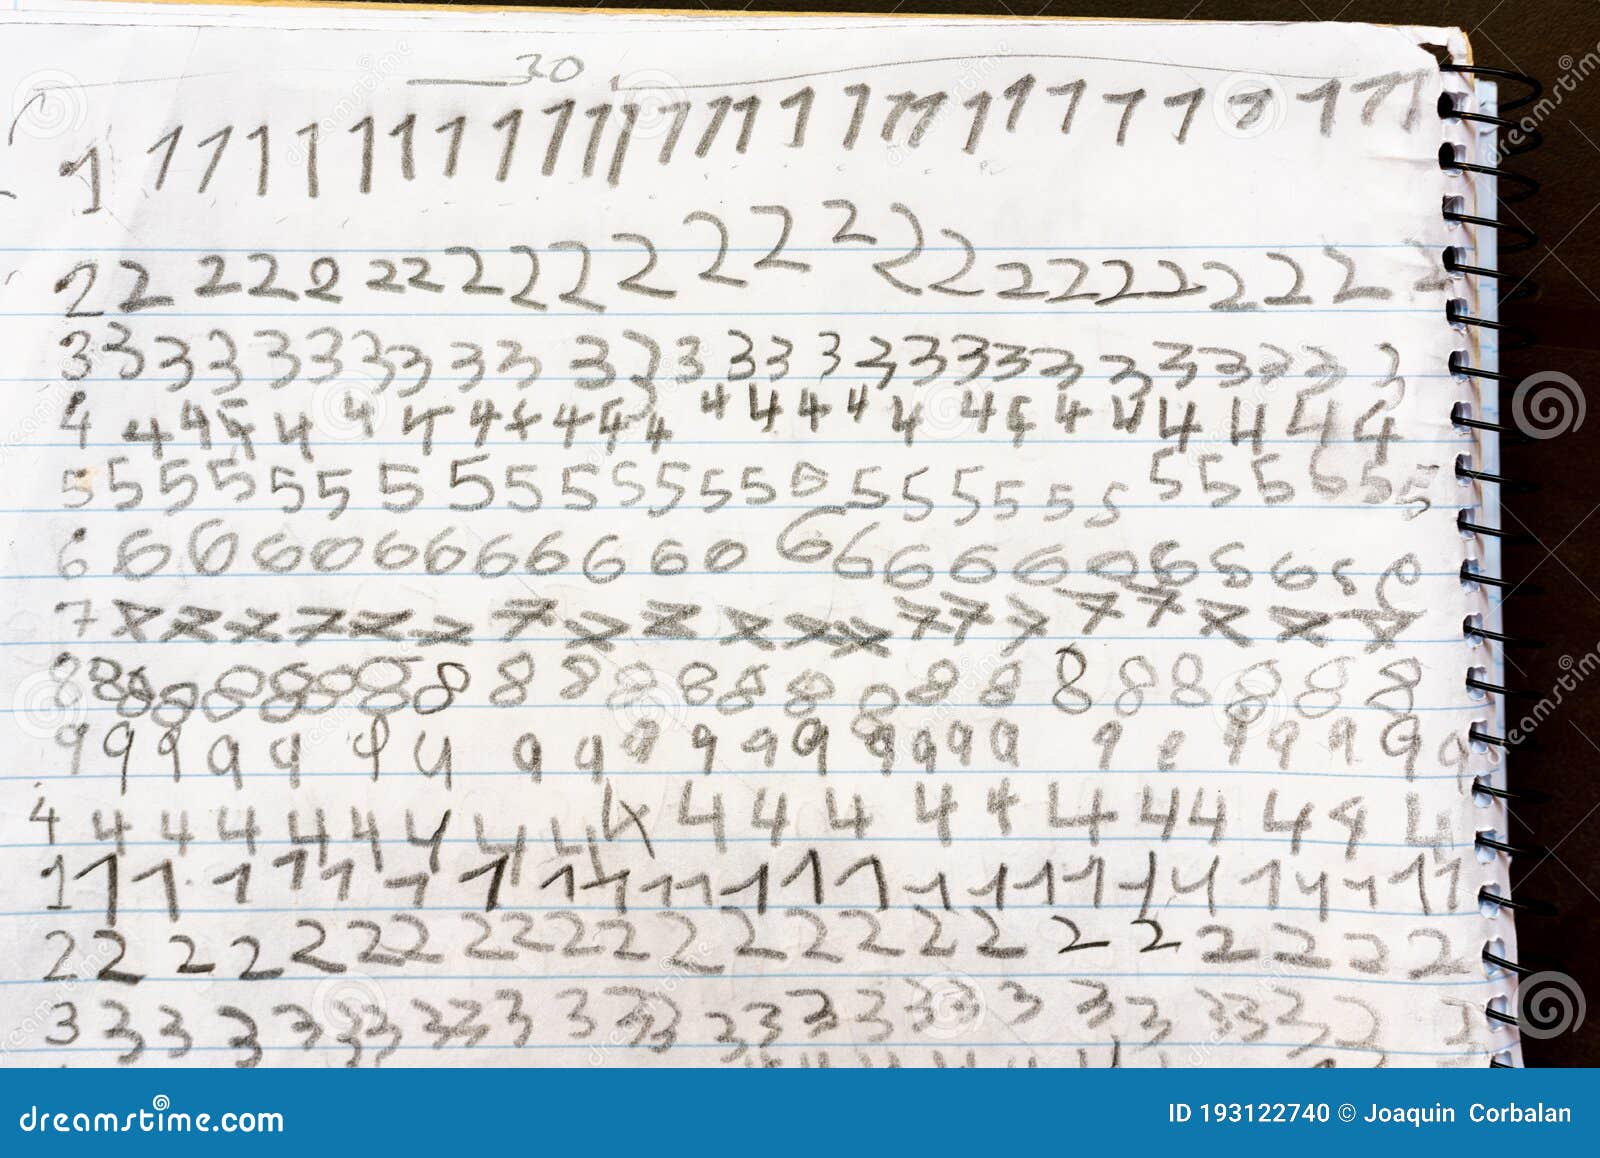 30
1 1 1 1 1 1 1 1 1 1 1 1 1 1 1 1 1 1 1 1 1 1 1 1 1 1 1 1 1
2 2 2 2 2 2 2 2 2 2 2 2 2 2 2 2 2 2 2 2 2 2 2 2
3 3 3 3 3 3 3 3 3 3 3 3 3 3 3 3 3 3 3 3 3 3 3 3 3 3 3
4 4 4 4 4 4 4 4 4 4 4 4 4 4 4 4 4 4 4 4 4 4 4 4 4
5 5 5 5 5 5 5 5 5 5 5 5 5 5 5 5 5 5 5 5 5 5 5 5 5 5 5
6 6 6 6 6 6 6 6 6 6 6 6 6 6 6 6 6 6 6 6 6 6 6
7 7 7 7 7 7 7 7 7 7 7 7 7 7 7 7 7 7 7 7 7
8 8 8 8 8 8 8 8 8 8 8 8 8 8 8 8 8 8 8 8 8 8 8 8
9 9 9 9 9 9 9 9 9 9 9 9 9 9 9 9 9 9 9 9 9 9 9 9
4 4 4 4 4 4 4 4 4 4 4 4 4 4 4 4 4 4 4 4 4
1 1 1 1 1 1 1 1 1 1 1 1 1 1 1 1 1 1 1 1 1 1 1 1 1 1
2 2 2 2 2 2 2 2 2 2 2 2 2 2 2 2 2 2 2 2 2 2 2
3 3 3 3 3 3 3 3 3 3 3 3 3 3 3 3 3 3 3 3 3 3 3 3 3 3 3
dreamstime.com
ID 193122740 © Joaquin Corbalan